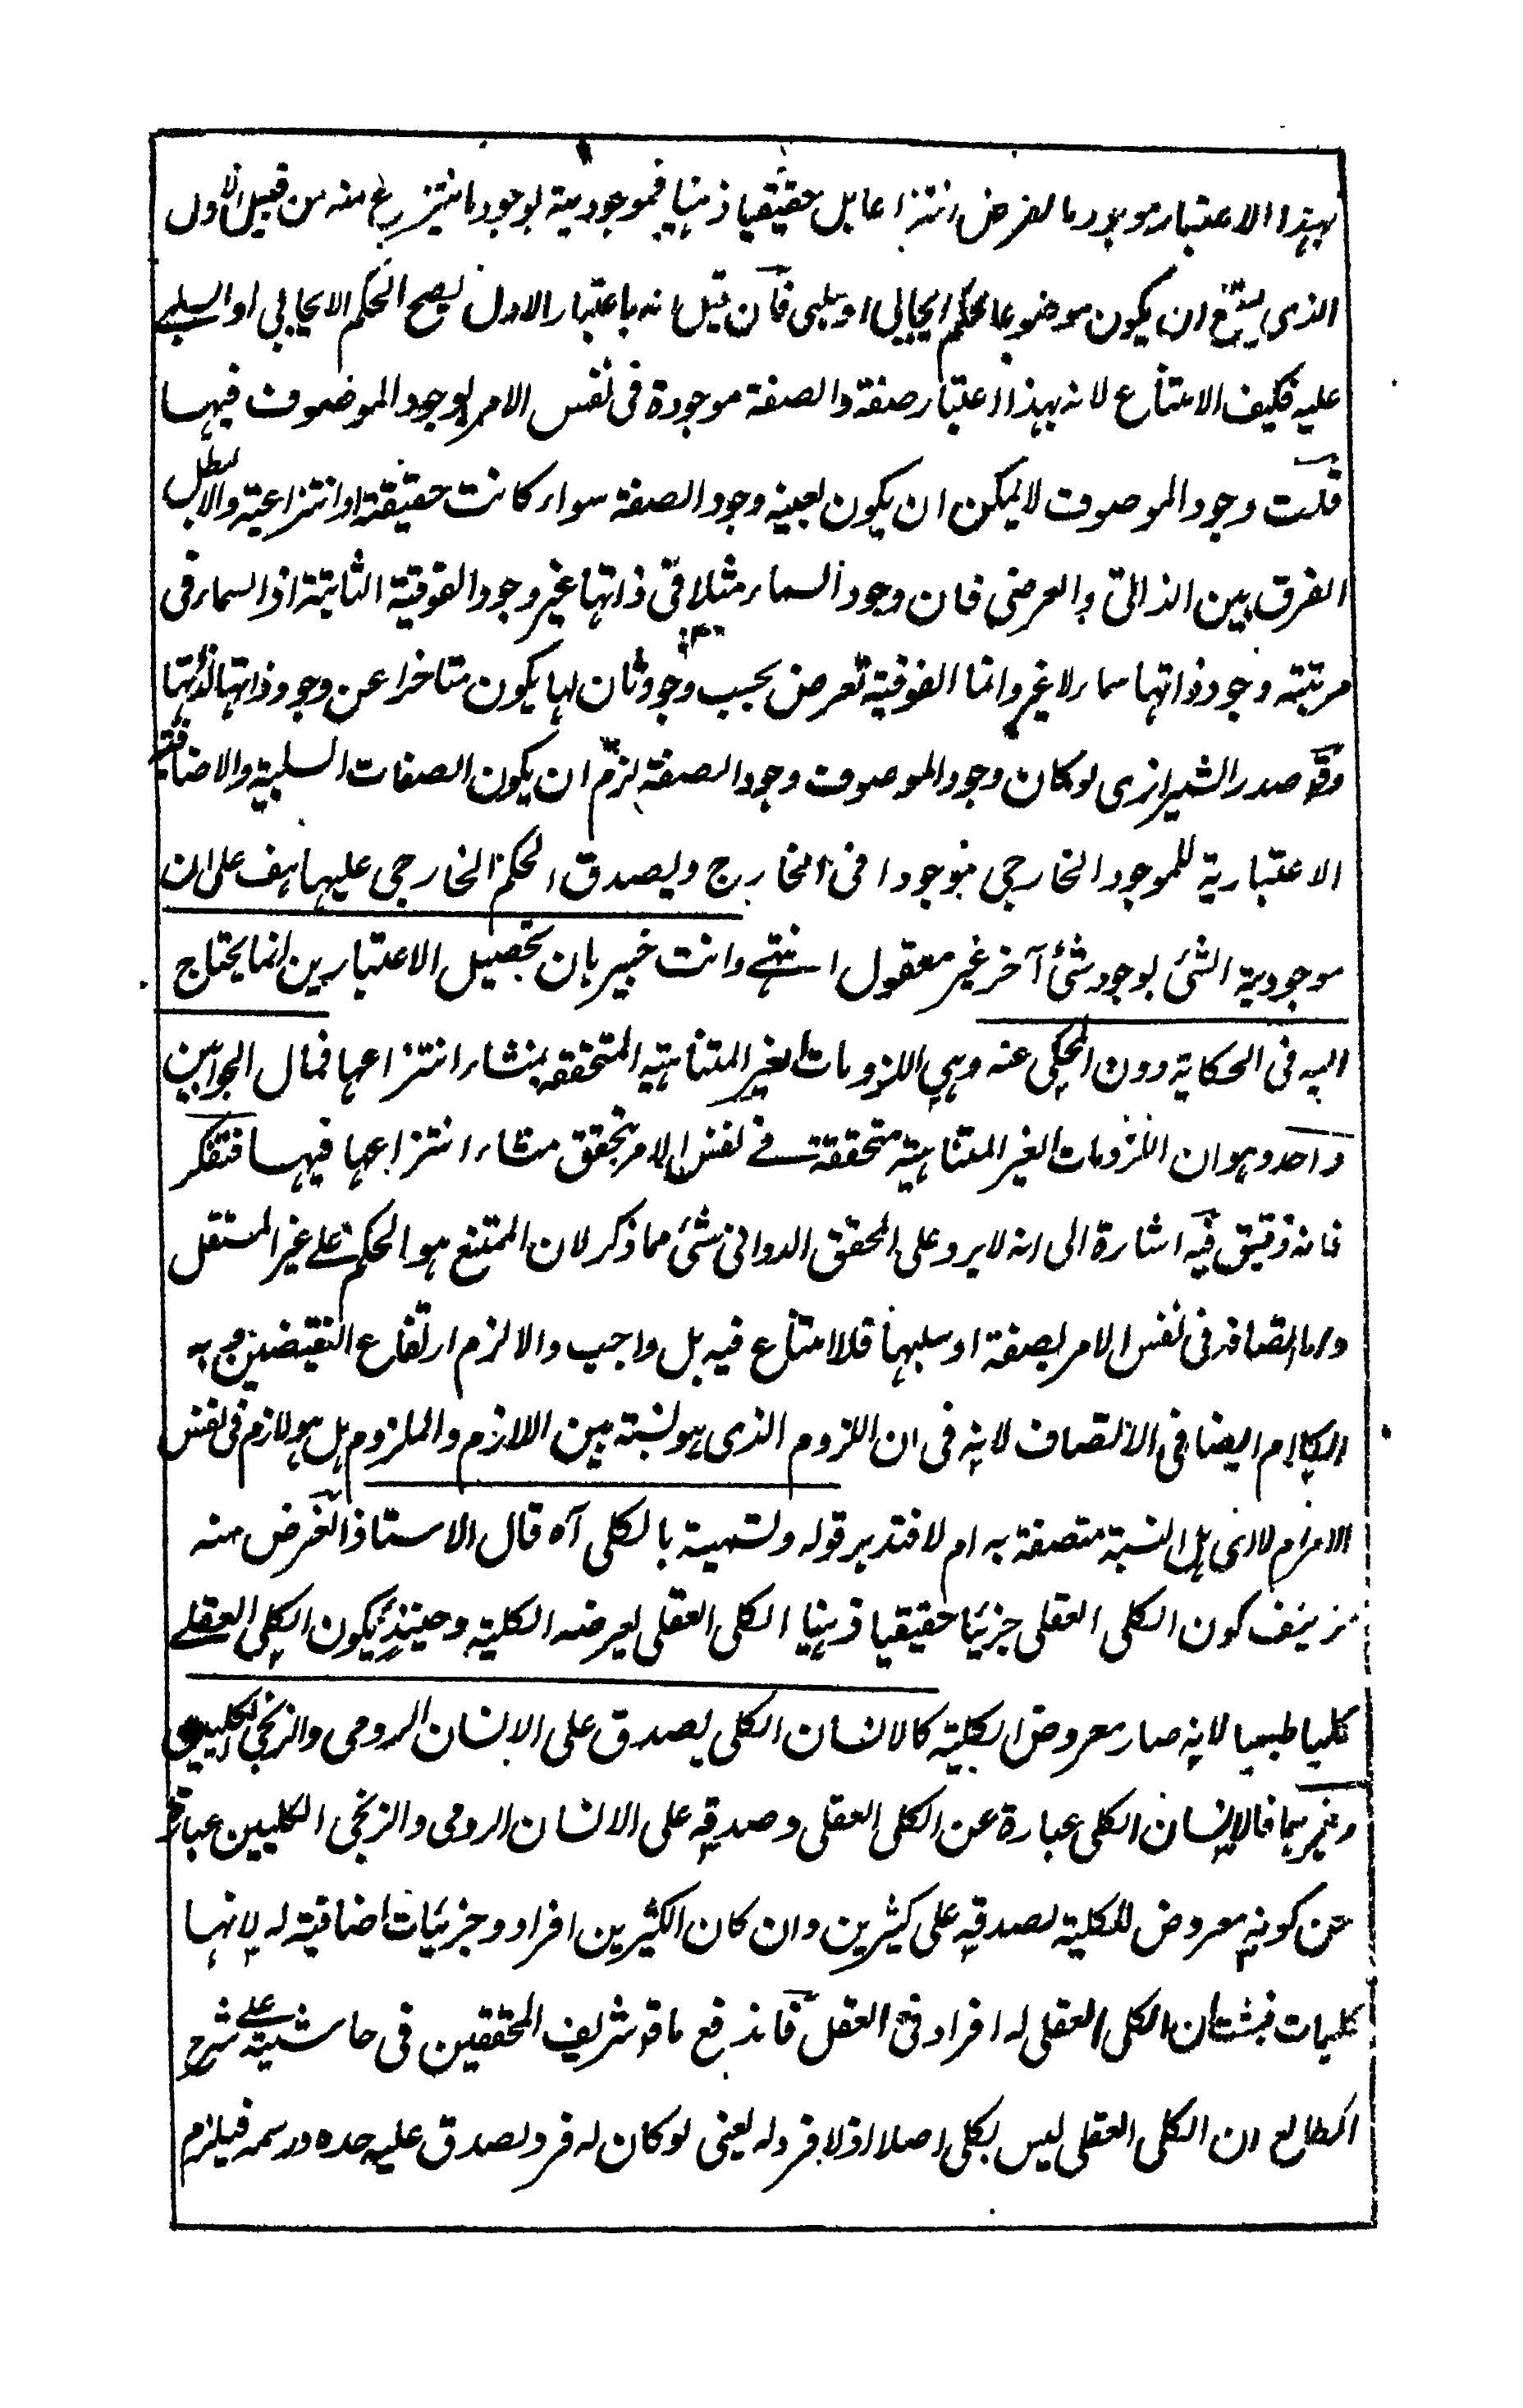 بهذا الاعتبار موجود بالعرض انتزاعا بل حقيقيا ذهنيا فموجودية لوجود ما ينتزع منه من قبيل الاول
الذى يمتنع ان يكون موضوعا لحكم ايجابي او سلبي فان قيل انه باعتبار الاول يصح الحكم الايجابي او السلبي
عليه فكيف الامتناع لانه بهذا الاعتبار صفة والصفة موجودة فى نفس الامر لوجود الموصوف فيها
قلت وجود الموصوف لا يمكن ان يكون بعينه وجود الصفة سواء كانت حقيقة او انتزاعية والا بطل
الفرق بين الذاتى والعرضي فان وجود السماء مثلا فى ذاتها غير وجود الفوقية الثابتة اذ السماء فى
مرتبة وجود ذاتها سماء لا غير وانما الفوقية تعرض بحسب وجود ثان لها يكون متاخرا عن وجود ذاتها لذاتها
وقو صدر الشيرازى لو كان وجود الموصوف وجود الصفة لزم ان يكون الصفات السلبية والاضافية
الاعتبارية للموجود الخارجي موجودا فى الخارج وليصدق الحكم الخارجى عليها هف على ان
موجودية الشئ لوجود شئ آخر غير معقول انتهى وانت خبير بان تحصيل الاعتبارين انما يحتاج
اليه فى الحكاية دون المحكى عنه وهى اللزومات الغير المتناهية المتحققه بمنشاء انتزاعها فمال الجوابين
واحد وهو ان اللزومات الغير المتناهية متحققة فى نفس الامر بتحقق منشاء انتزاعها فيها فتفكر
فانه دقيق فيه اشارة الى انه لا يرد على المحقق الدوانى شئ مما ذكر لان الممتنع هو الحكم على غير المستقل
واما اتصافه فى نفس الامر بصفة او سلبها فلا امتناع فيه بل واجب والا لزم ارتفاع النقيضين وبه
الكلام ايضا فى الاتصاف لانه فى ان اللزوم الذى هو نسبة بين اللازم والملزوم بل هو لازم فى نفس
الامر ام لا اى بل النسبة متصفة به ام لا فتدبر قوله وتسمية بالكلى آه قال الاستاذ الغرض منه
تزييف كون الكلى العقلى جزئيا حقيقيا ذهنيا الكلى العقلى يعرضه الكلية وحينئذ يكون الكلى العقلى
كليا طبعيا لانه صار معروض الكلية كالانسان الكلى يصدق على الانسان الرومى والزنجى الكليين
وغيرهما فالانسان الكلى عبارة عن الكلى العقلى وصدقه على الانسان الرومى والزنجى الكليين عبارة
عن كونه معروض للكلية لصدقه على كثيرين وان كان الكثيرين افراد وجزئيات اضافية له لانها
كليات فثبت ان الكلى العقلى له افراد فى العقل فاندفع ما قو شريف المحققين فى حاشية على شرح
المطالع ان الكلى العقلى ليس بكلى اصلا اذ لا فرد له يعنى لو كان له فرد لصدق عليه حده ورسمه فيلزم